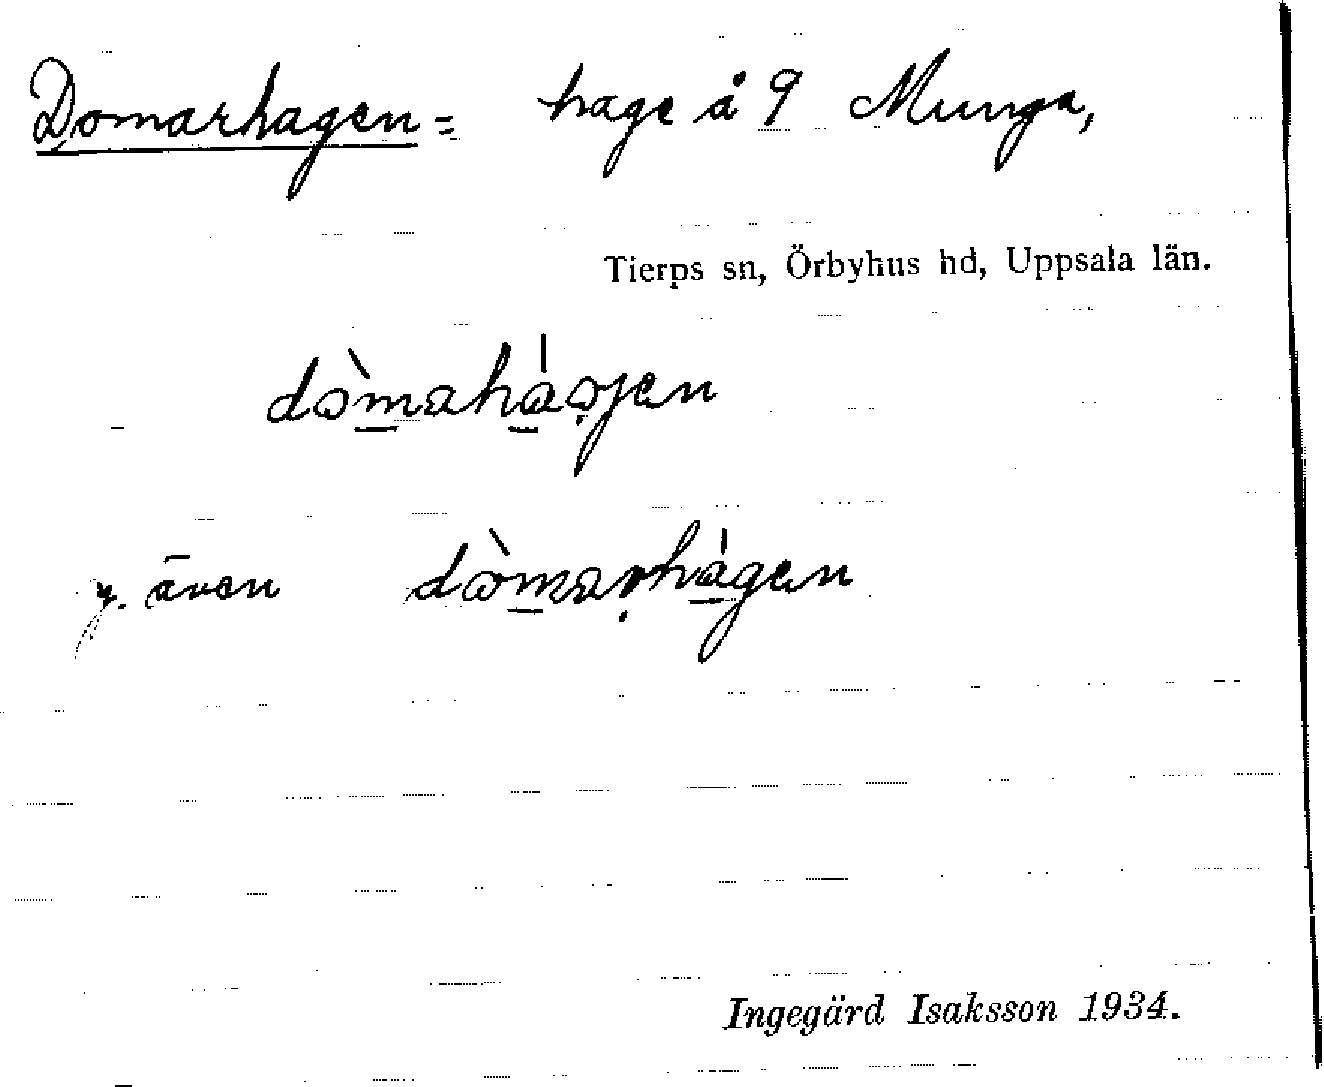 Domarhagen = hage å 9 Munga,
Tierps sn, Örbyhus hd, Uppsala län.
dòmaháojen
y. även dòmarhágen
Ingegärd Isaksson 1934.